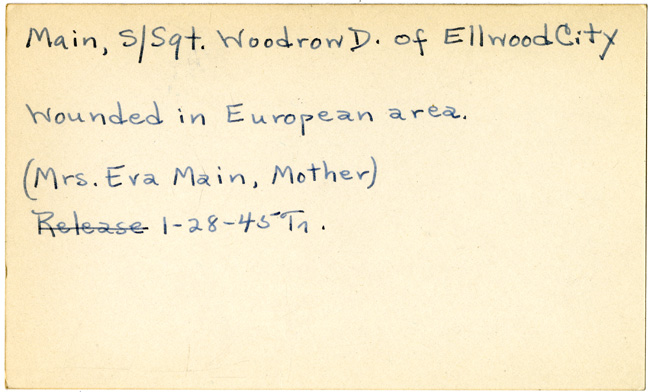 Main, S/Sgt. Woodrow D. of Ellwood City
Wounded in European area.
(Mrs. Eva Main, Mother)
Release 1-28-45 Tr.